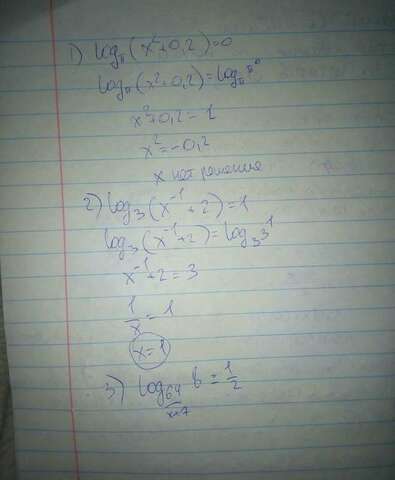 1) log_π (x²+0,2)=0
log_π (x²+0,2) = log_π π⁰
x²+0,2 = 1
x² = -0,2
x нет решения
2) log₃ (x⁻¹ + 2) = 1
log₃ (x⁻¹+2) = log₃ 3¹
x⁻¹+2 = 3
1/x = 1
x=1
3) log 64/(x+7) 6 = 1/2